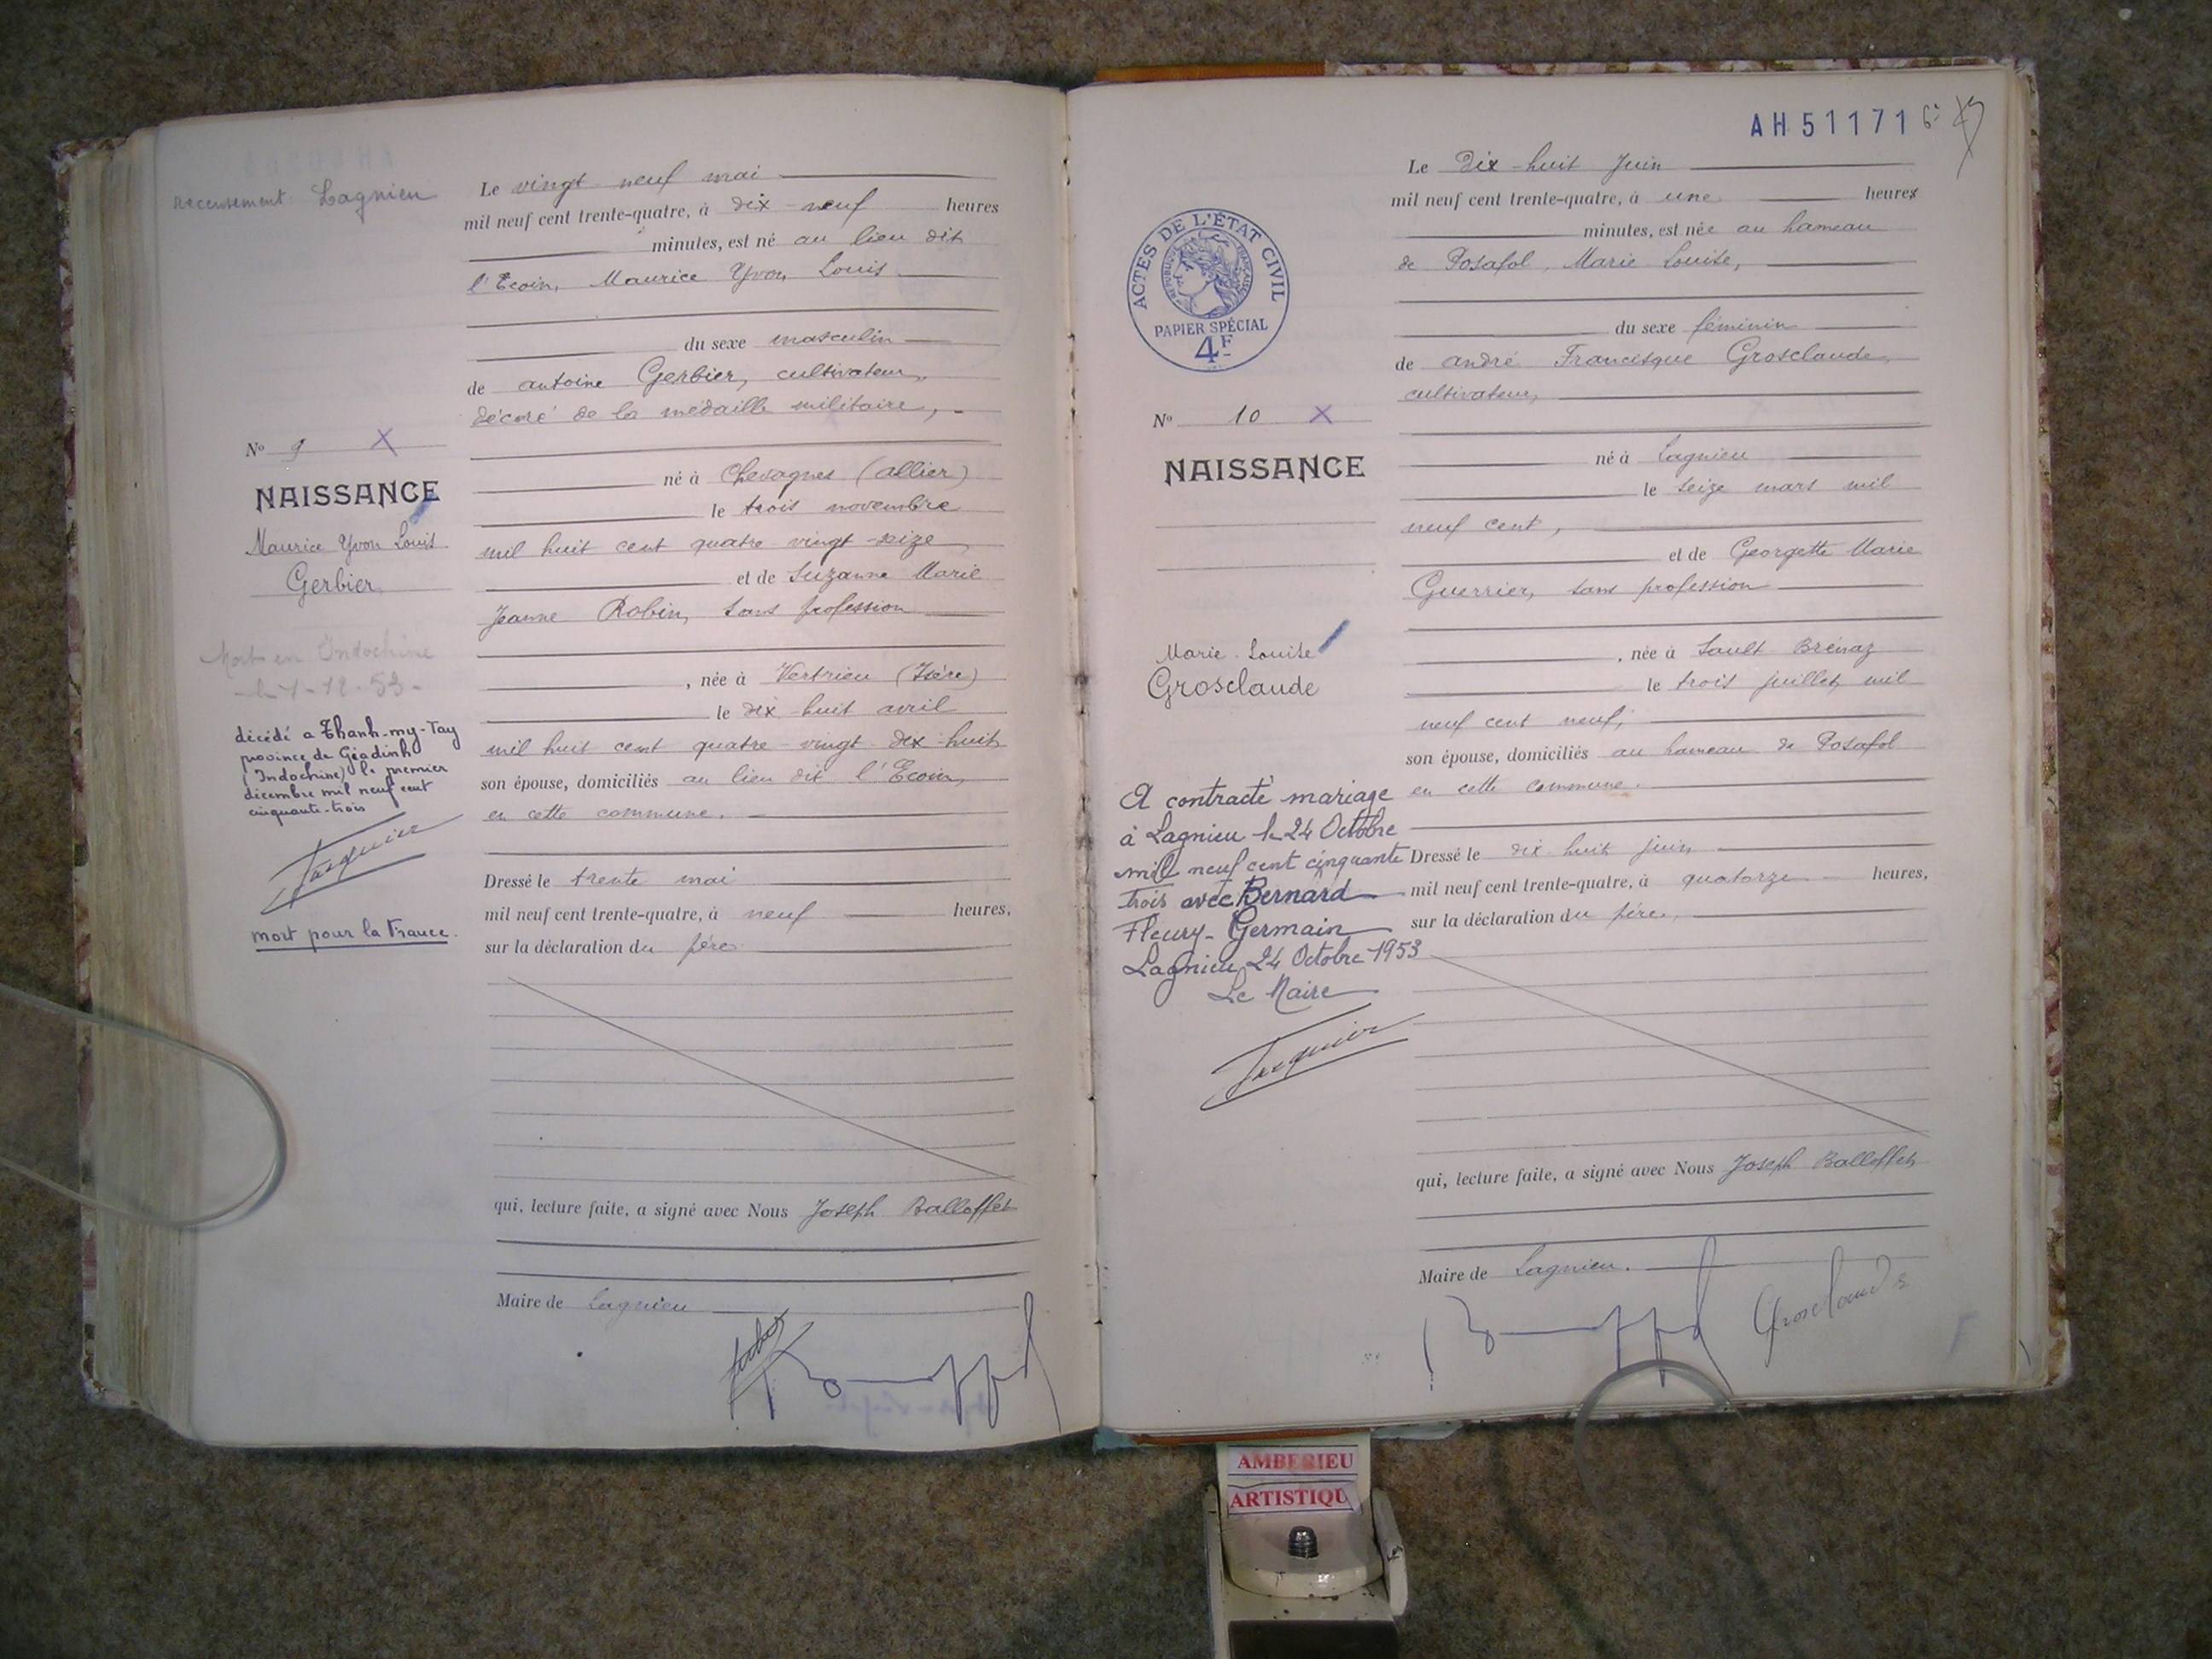 recensement Lagnieu
Nº 9 X
NAISSANCE
Maurice Yvon Louis
Gerbier
Mort en Indochine
le 1-12-53-
décédé a Thanh-my-Tay
province de Giadinh
(Indochine) le premier
décembre mil neuf cent
cinquante-trois
mort pour la France.
Le vingt-neuf mai
mil neuf cent trente-quatre, à dix-neuf heures
minutes, est né au lieu dit
l'Ecoin, Maurice Yvon Louis
du sexe masculin
de antoine Gerbier, cultivateur,
décoré de la médaille militaire,
né à Chevagnes (allier)
le trois novembre
mil huit cent quatre-vingt-seize
et de Suzanne Marie
Jeanne Robin, sans profession
, née à Vertrieu (Isère)
le dix-huit avril
mil huit cent quatre-vingt-dix-huit
son épouse, domiciliés au lieu dit l'Ecoin,
en cette commune.
Dressé le trente mai
mil neuf cent trente-quatre, à neuf heures,
sur la déclaration du père
qui, lecture faite, a signé avec Nous Joseph Balloffet
Maire de Lagnieu
AH51171
ACTES DE L'ÉTAT CIVIL
RÉPUBLIQUE FRANÇAISE
PAPIER SPÉCIAL
4F
Nº 10 X
NAISSANCE
Marie-Louise
Grosclaude
A contracté mariage
à Lagnieu le 24 Octobre
mil neuf cent cinquante
trois avec Bernard
Fleury-Germain
Lagnieu 24 Octobre 1953
Le Maire
Le Dix-huit Juin
mil neuf cent trente-quatre, à une heures
minutes, est née au hameau
de Posafol, Marie Louise,
du sexe féminin
de andré Francisque Grosclaude,
cultivateur,
né à Lagnieu
le seize mars mil
neuf cent,
et de Georgette Marie
Guerrier, sans profession
, née à Sault Brénaz
le trois juillet mil
neuf cent neuf,
son épouse, domiciliés au hameau de Posafol
en cette commune.
Dressé le dix-huit juin
mil neuf cent trente-quatre, à quatorze heures,
sur la déclaration du père,
qui, lecture faite, a signé avec Nous Joseph Balloffet
Maire de Lagnieu.
Grosclaude
AMBERIEU
ARTISTIQU